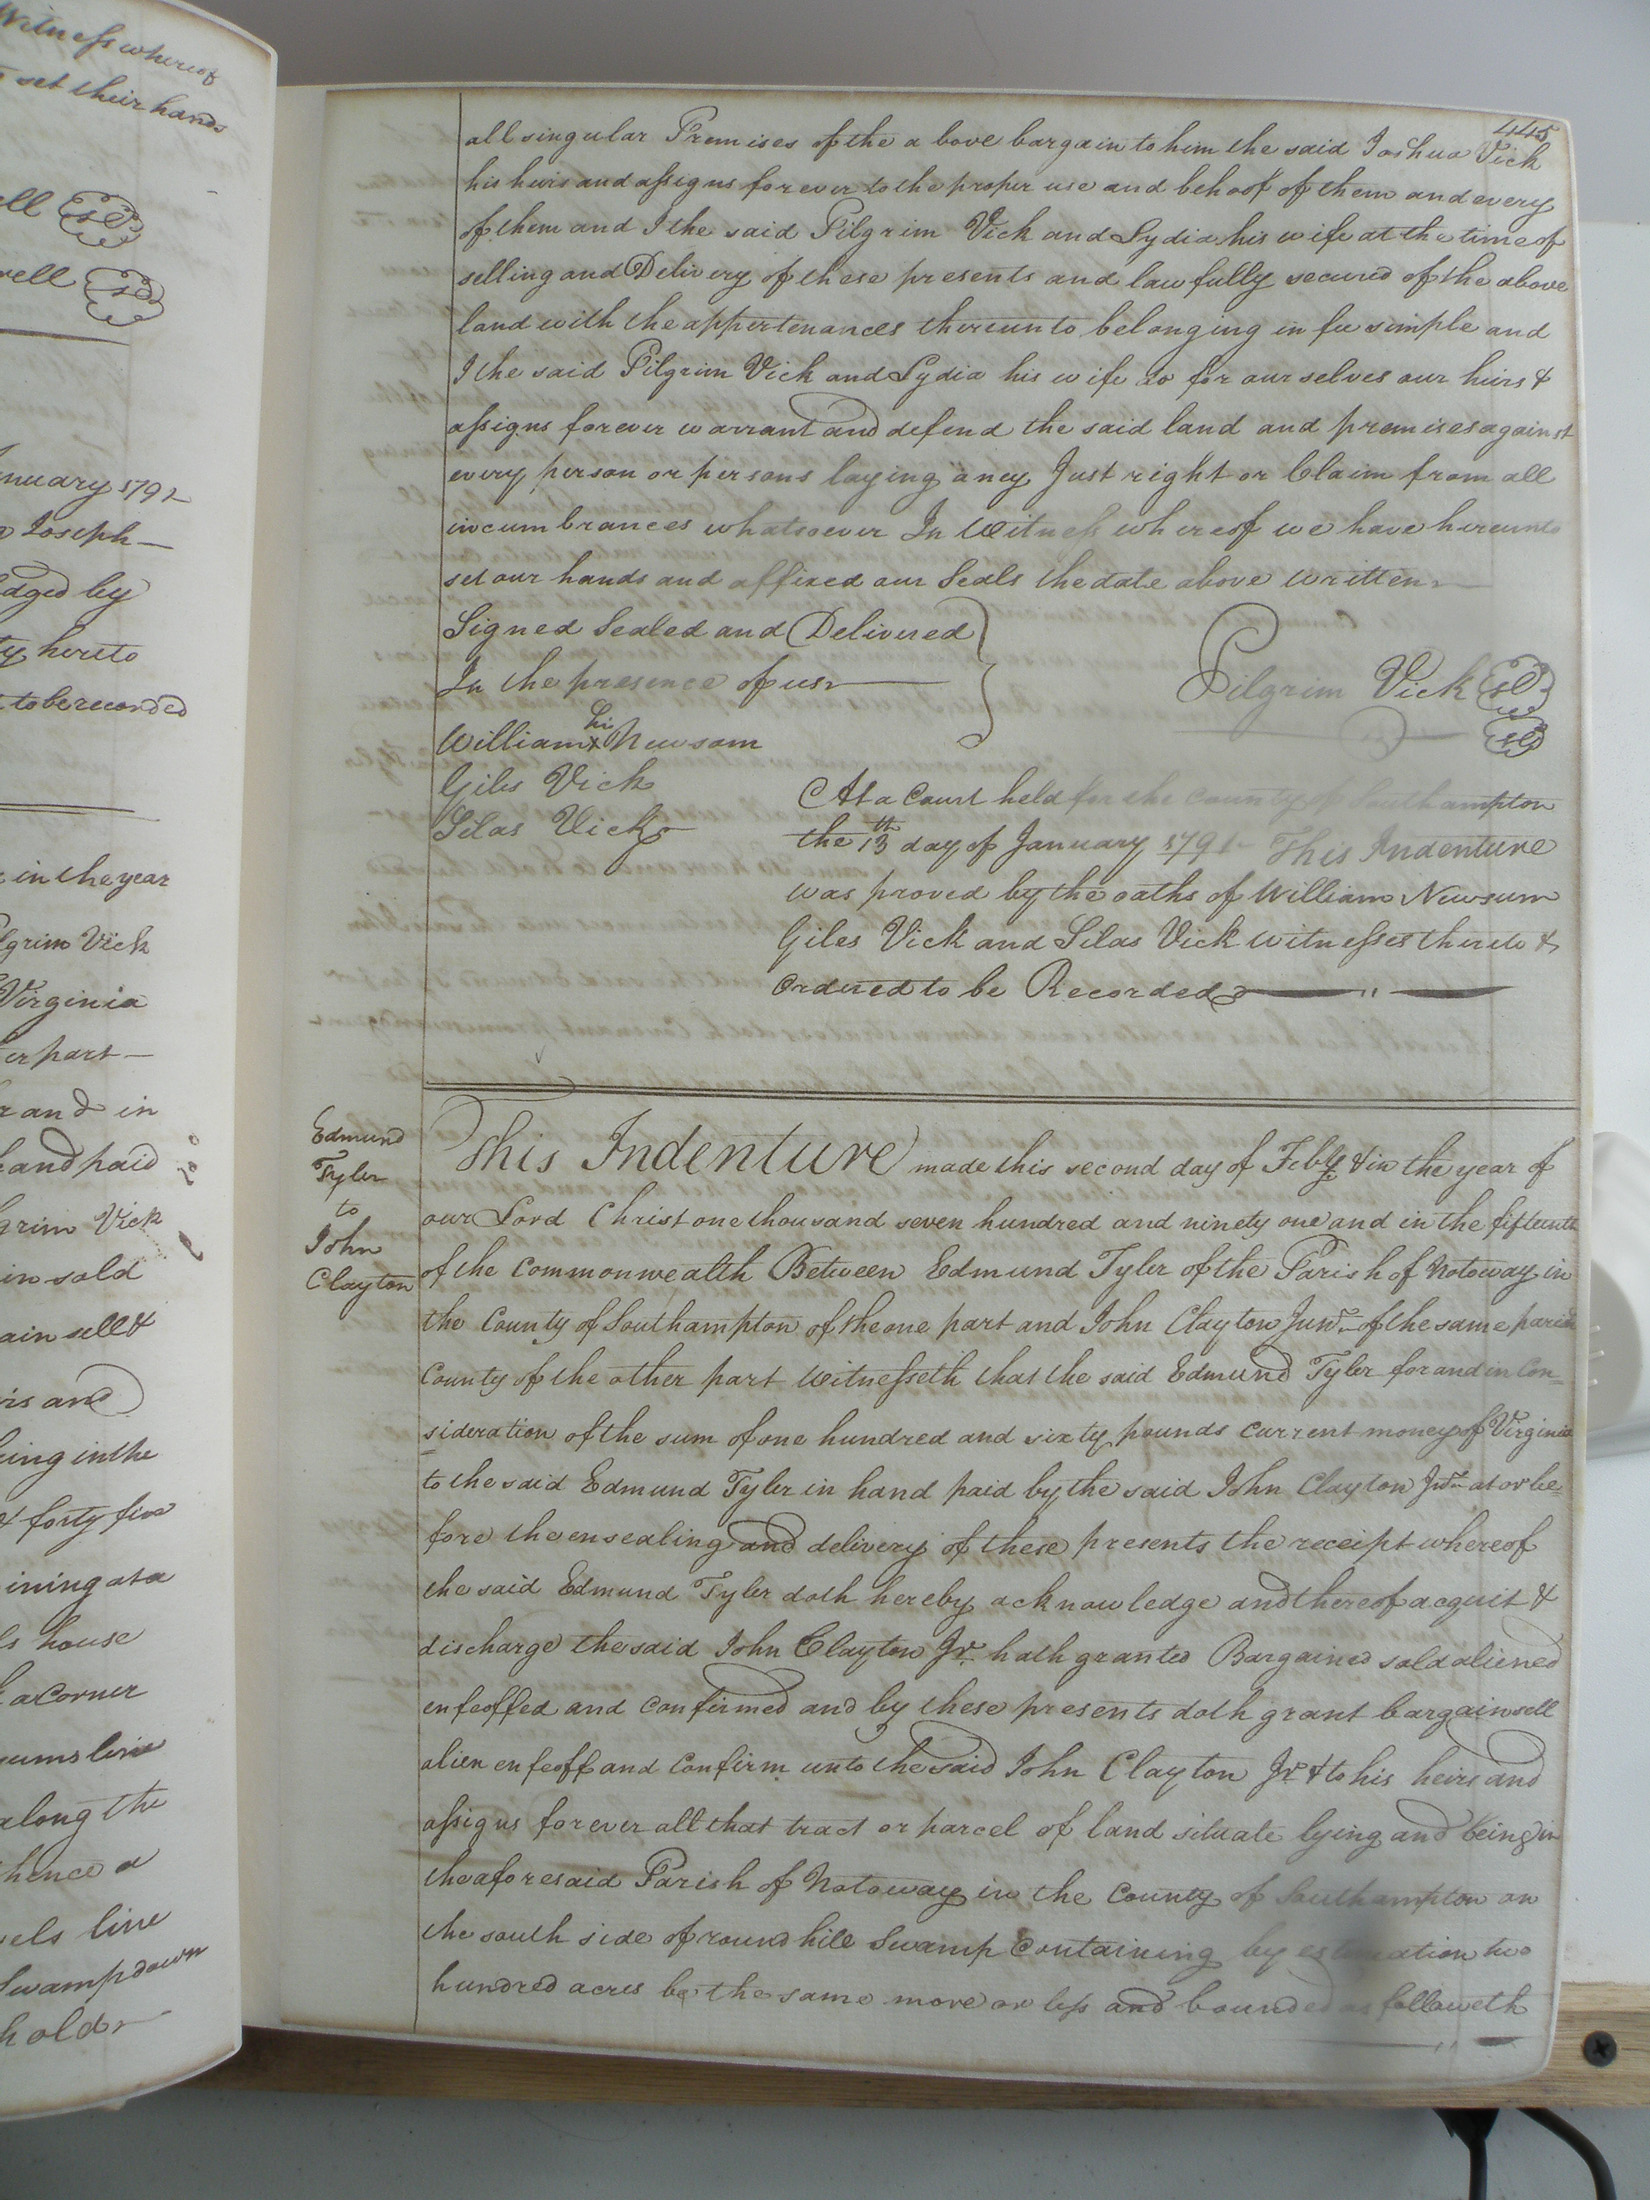 Witness whereof
set their hands
ell
well
nuary 1791
Joseph
dged by
ty hereto
to be recorded
in the year
lgrim Vick
Virginia
er part
and in
and paid
grim Vick
in sold
ain sell &
rs and
eing in the
& forty five
ining at a
ls house
a Corner
sums line
along the
hence a
els line
Swamp down
hold
445
all singular Premises of the a bove bargain to him the said Joshua Vick
his heirs and assigns for ever to the proper use and behoof of them and every
of them and I the said Pilgrim Vick and Lydia his wife at the time of
selling and Delivery of these presents and law fully secured of the above
land with the appertenances thereunto belonging in fee simple and
I the said Pilgrim Vick and Lydia his wife do for our selves our heirs &
assigns forever warrant and defend the said land and premises against
every person or persons laying aney Just right or Claim from all
incumbrances whatsoever In Witness whereof we have hereunto
set our hands and affixed our Seals the date above written
Signed Sealed and Delivered
In the presence of us
Pilgrim Vick
his
William X Newsom
Giles Vick
Silas Vick
At a Court held for the County of Southampton
the 13th day of January 1791 This Indenture
was proved by the oaths of William Newsum
Giles Vick and Silas Vick witnesses thereto &
Ordered to be Recorded
Edmund
Tyler
to
John
Clayton
This Indenture made this second day of Feby & in the year of
our Lord Christ one thousand seven hundred and ninety one and in the fifteenth
of the Commonwealth Between Edmund Tyler of the Parish of Notoway in
the County of Southampton of the one part and John Clayton Junr. of the same parish
County of the other part Witnesseth that the said Edmund Tyler for and in Con=
sideration of the sum of one hundred and sixty pounds current money of Virginia
to the said Edmund Tyler in hand paid by the said John Clayton Junr at or be=
fore the ensealing and delivery of these presents the receipt whereof
the said Edmund Tyler doth hereby acknowledge and thereof acquit &
discharge the said John Clayton Jr. hath granted Bargained sold aliened
enfeoffed and Confirmed and by these presents doth grant bargain sell
alien enfeoff and Confirm unto the said John Clayton Jr & to his heirs and
assigns forever all that tract or parcel of land situate lying and being in
the aforesaid Parish of Notoway in the County of Southampton on
the south side of round hill Swamp Containing by estimation two
hundred acres be the same more or less and bounded as followeth